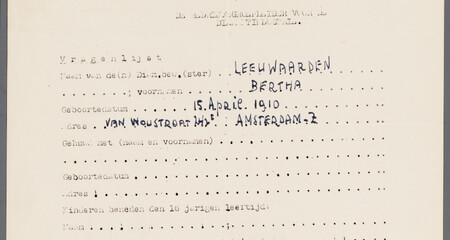 Vragenlijst
Naam van de(n) Diam.bew.(ster) LEEUWAARDEN
; voornamen BERTHA
Geboortedatum 15 April 1910
Adres VAN WOUSTRAAT AMSTERDAM-Z
Gehuwd met (naam en voornamen)
Geboortedatum
Adres
Kinderen beneden den 16 jarigen leertijd:
Naam ;